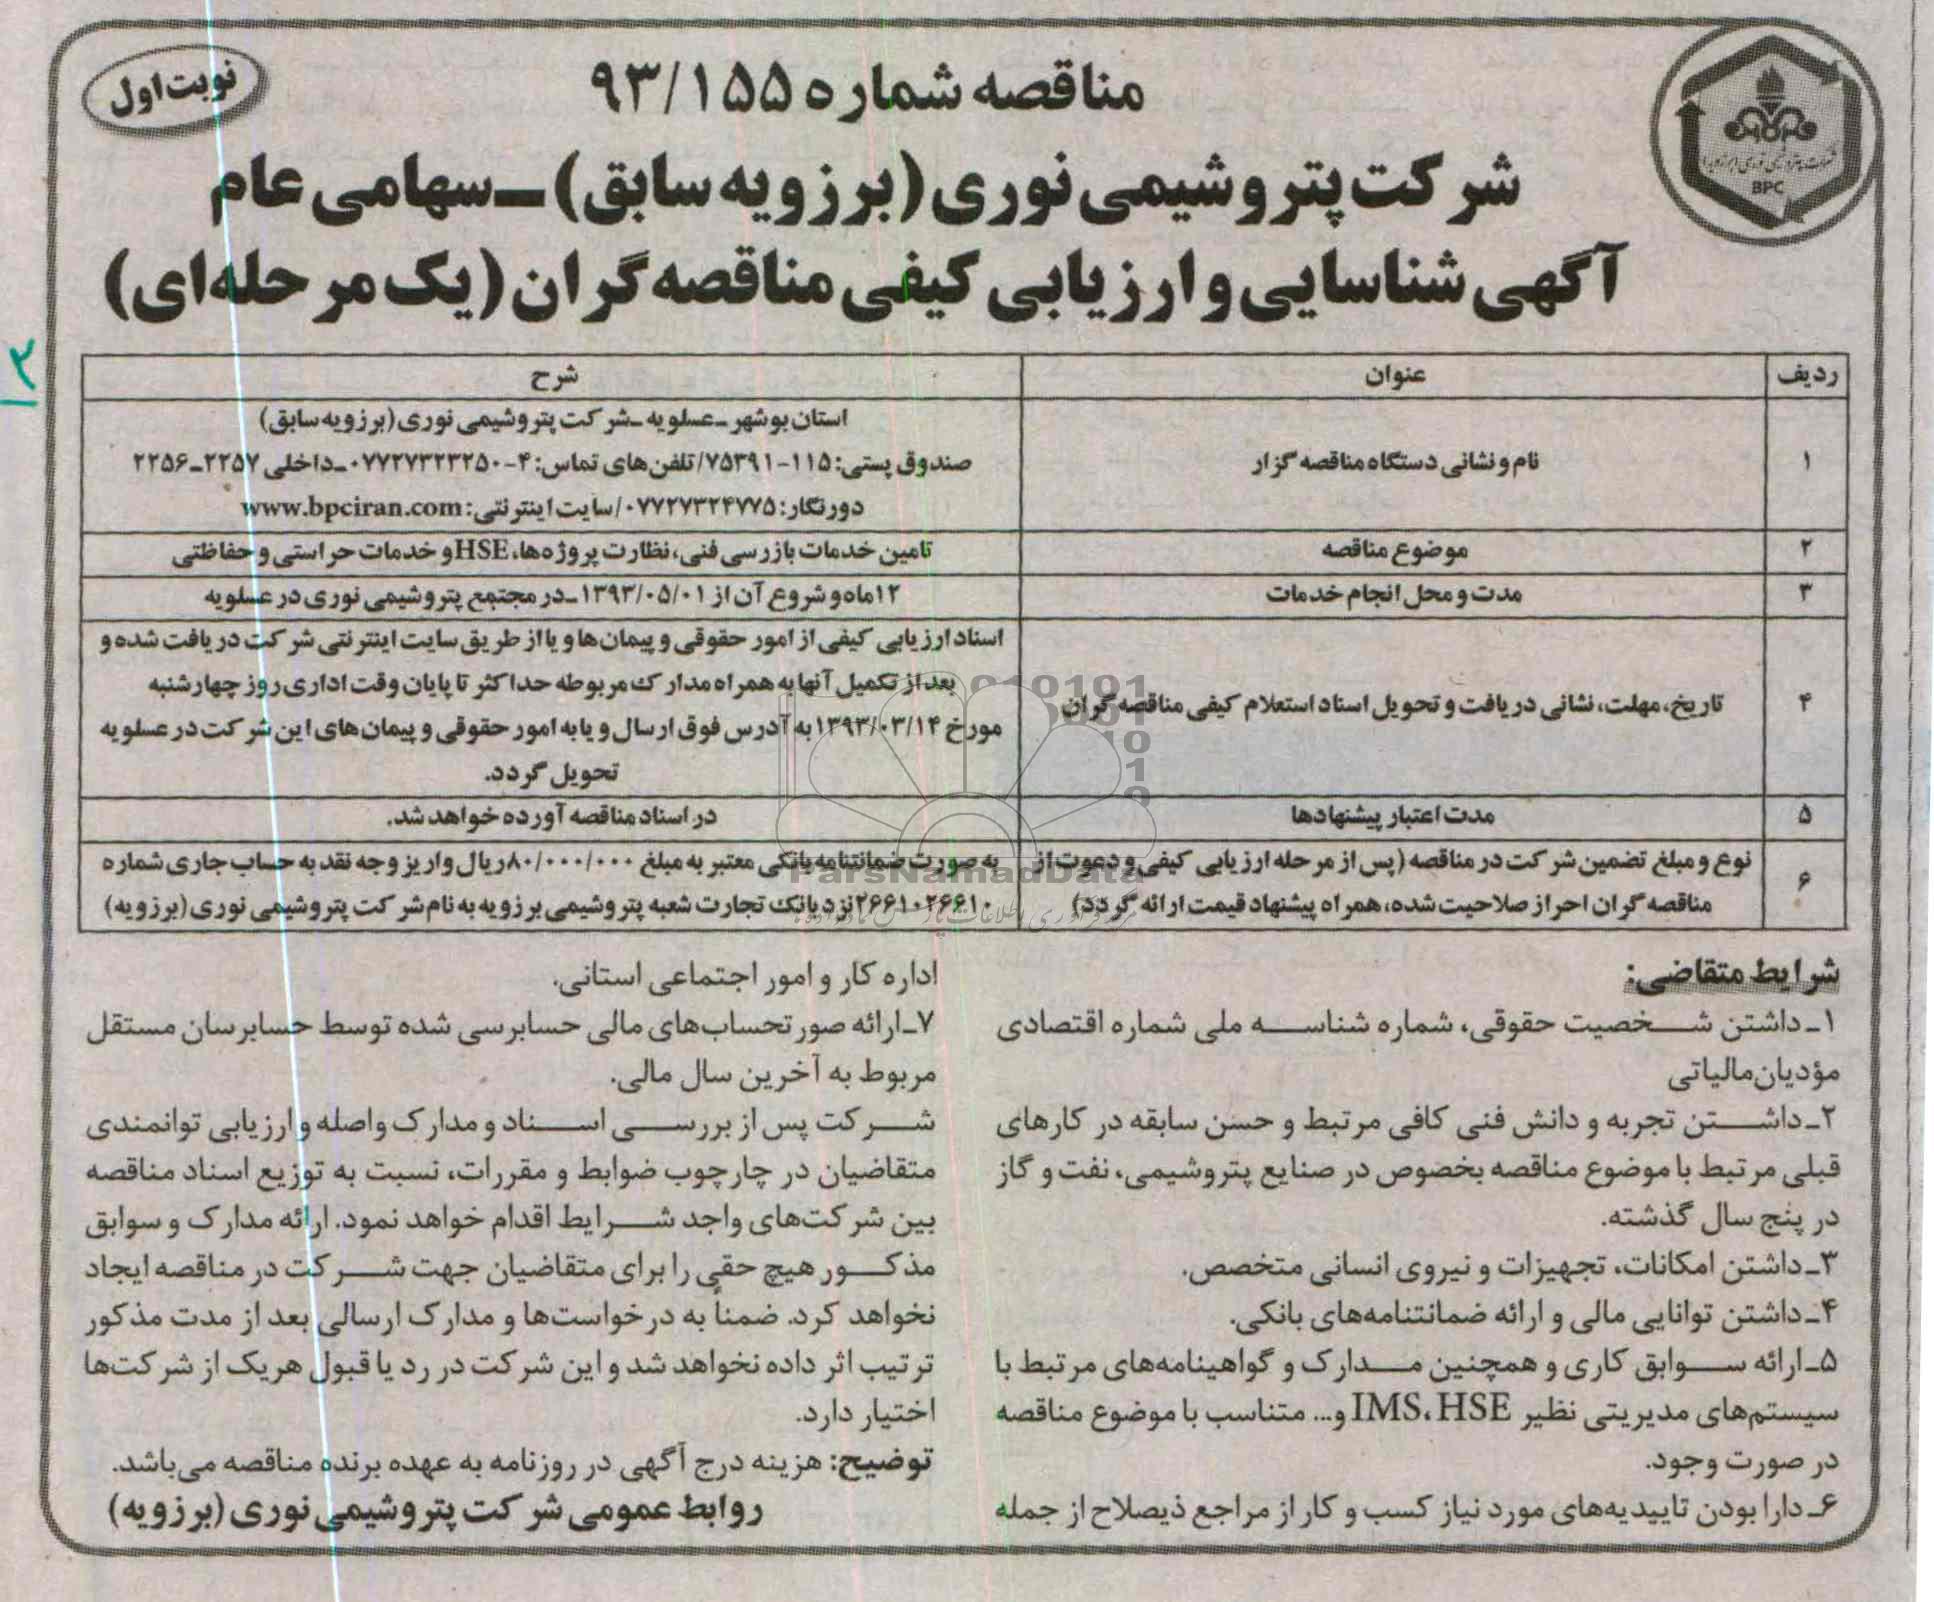 نوبت اول
مناقصه شماره ۹۳/۱۵۵
شرکت پتروشیمی نوری (برزویه سابق) ـ سهامی عام
آگهی شناسایی و ارزیابی کیفی مناقصه‌گران (یک مرحله‌ای)
BPC
ردیف عنوان شرح
۱ نام و نشانی دستگاه مناقصه گزار
استان بوشهر ـ عسلویه ـ شرکت پتروشیمی نوری (برزویه سابق)
صندوق پستی: ۱۱۵-۷۵۳۹۱/ تلفن‌های تماس: ۴-۰۷۷۲۷۳۲۳۲۵۰ـ داخلی ۲۲۵۷ـ۲۲۵۶
دورنگار: ۰۷۷۲۷۳۲۴۷۷۵/ سایت اینترنتی: www.bpciran.com
۲ موضوع مناقصه تامین خدمات بازرسی فنی، نظارت پروژه‌ها، HSE و خدمات حراستی و حفاظتی
۳ مدت و محل انجام خدمات ۱۲ماه و شروع آن از ۱۳۹۳/۰۵/۰۱ ـ در مجتمع پتروشیمی نوری در عسلویه
۴ تاریخ، مهلت، نشانی دریافت و تحویل اسناد استعلام کیفی مناقصه گران
اسناد ارزیابی کیفی از امور حقوقی و پیمان‌ها و یا از طریق سایت اینترنتی شرکت دریافت شده و
بعد از تکمیل آنها به همراه مدارک مربوطه حداکثر تا پایان وقت اداری روز چهارشنبه
مورخ ۱۳۹۳/۰۳/۱۴ به آدرس فوق ارسال و یا به امور حقوقی و پیمان‌های این شرکت در عسلویه
تحویل گردد.
۵ مدت اعتبار پیشنهادها در اسناد مناقصه آورده خواهد شد.
۶ نوع و مبلغ تضمین شرکت در مناقصه (پس از مرحله ارزیابی کیفی و دعوت از
مناقصه گران احراز صلاحیت شده، همراه پیشنهاد قیمت ارائه گردد)
به صورت ضمانتنامه بانکی معتبر به مبلغ ۸۰/۰۰۰/۰۰۰ ریال واریز وجه نقد به حساب جاری شماره
۲۶۶۱۰۲۶۶۱۰ نزد بانک تجارت شعبه پتروشیمی برزویه به نام شرکت پتروشیمی نوری (برزویه)
ParsNamadData
شرایط متقاضی:
۱ـ داشتن شخصیت حقوقی، شماره شناسه ملی شماره اقتصادی
مؤدیان‌مالیاتی
۲ـ داشتن تجربه و دانش فنی کافی مرتبط و حسن سابقه در کارهای
قبلی مرتبط با موضوع مناقصه بخصوص در صنایع پتروشیمی، نفت و گاز
در پنج سال گذشته.
۳ـ داشتن امکانات، تجهیزات و نیروی انسانی متخصص.
۴ـ داشتن توانایی مالی و ارائه ضمانتنامه‌های بانکی.
۵ـ ارائه سوابق کاری و همچنین مدارک و گواهینامه‌های مرتبط با
سیستم‌های مدیریتی نظیر IMS، HSE و... متناسب با موضوع مناقصه
در صورت وجود.
۶ـ دارا بودن تاییدیه‌های مورد نیاز کسب و کار از مراجع ذیصلاح از جمله
اداره کار و امور اجتماعی استانی.
۷ـ ارائه صورتحساب‌های مالی حسابرسی شده توسط حسابرسان مستقل
مربوط به آخرین سال مالی.
شرکت پس از بررسی اسناد و مدارک واصله و ارزیابی توانمندی
متقاضیان در چارچوب ضوابط و مقررات، نسبت به توزیع اسناد مناقصه
بین شرکت‌های واجد شرایط اقدام خواهد نمود. ارائه مدارک و سوابق
مذکور هیچ حقی را برای متقاضیان جهت شرکت در مناقصه ایجاد
نخواهد کرد. ضمناً به درخواست‌ها و مدارک ارسالی بعد از مدت مذکور
ترتیب اثر داده نخواهد شد و این شرکت در رد یا قبول هریک از شرکت‌ها
اختیار دارد.
توضیح: هزینه درج آگهی در روزنامه به عهده برنده مناقصه می‌باشد.
روابط عمومی شرکت پتروشیمی نوری (برزویه)